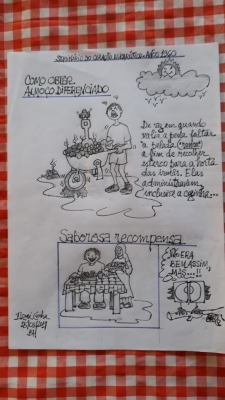 SEMINÁRIO DO CORAÇÃO EUCARÍSTICO - ANOS 1960
COMO OBTER
ALMOÇO DIFERENCIADO
De vez em quando
valia a pena faltar
a pelada (rango)
a fim de recolher
esterco para a horta
das irmãs. Elas
administravam
inclusive a cozinha...
Saborosa recompensa
NÃO ERA
BEM ASSIM,
MAS...!!
BH